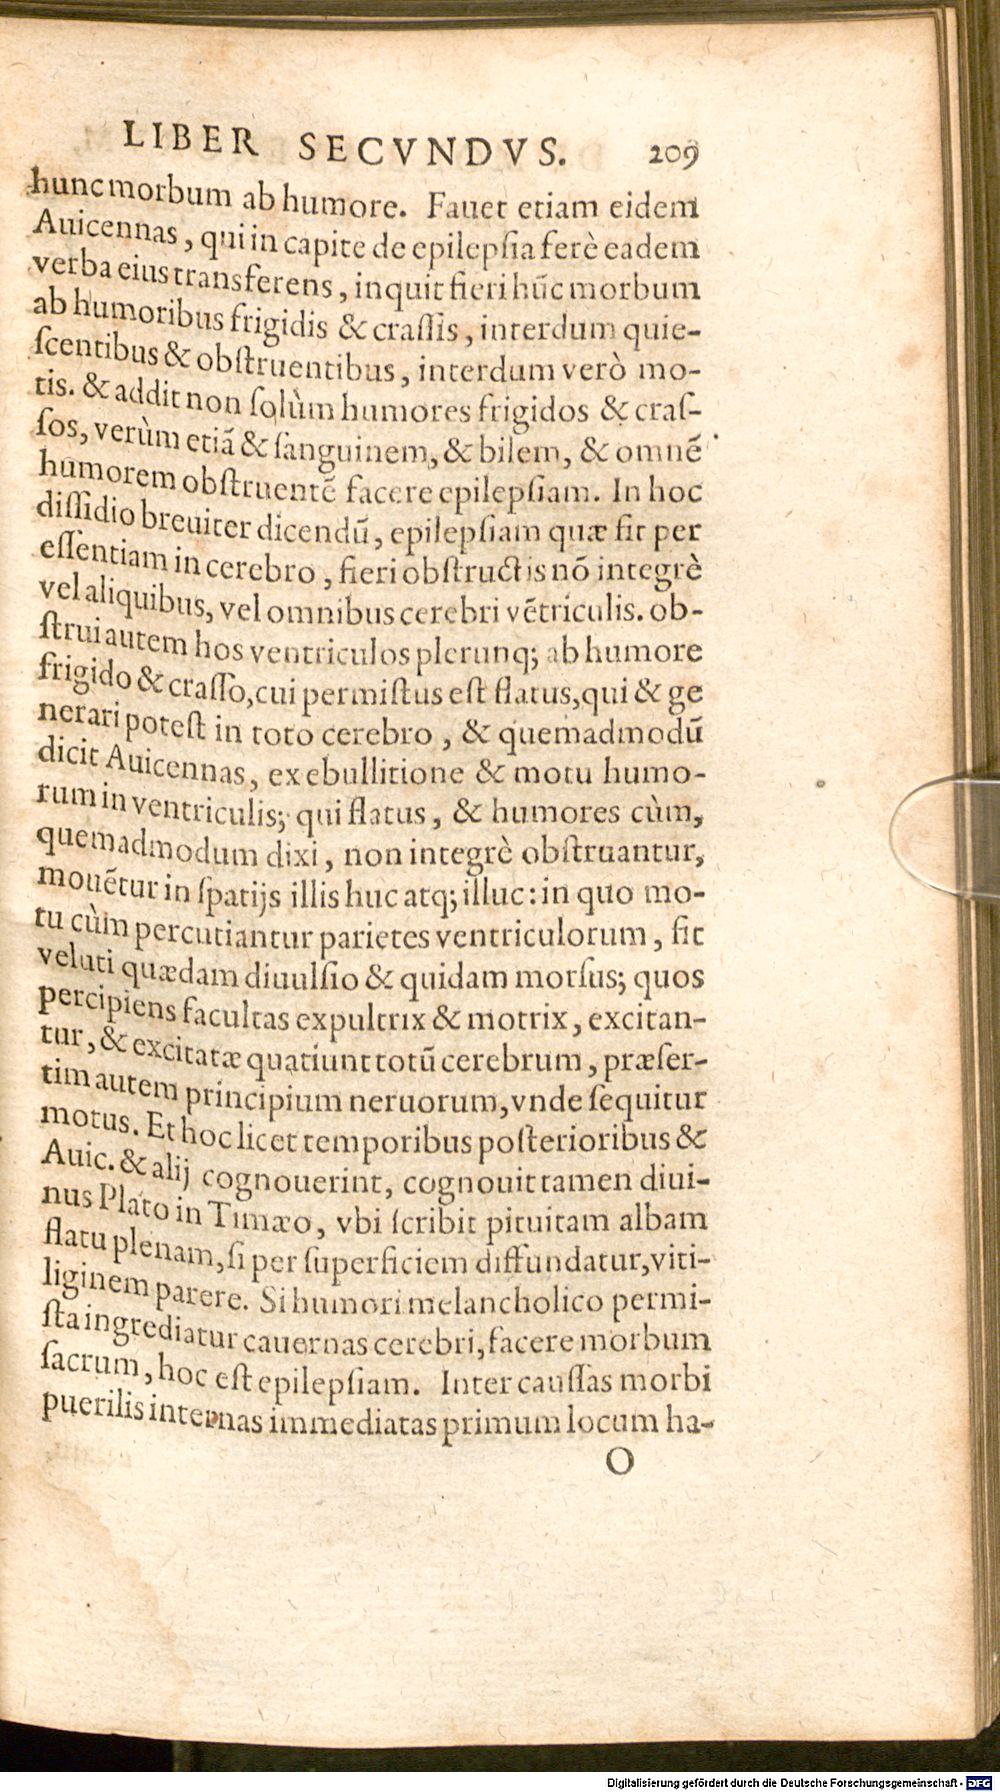 LIBER SECVNDVS. 209
hunc morbum ab humore. Fauet etiam eidem
Auicennas, qui in capite de epilepsia ferè eadem
verba eius transferens, inquit fieri hũc morbum
ab humoribus frigidis & crassis, interdum quie-
scentibus & obstruentibus, interdum verò mo-
tis. & addit non solùm humores frigidos & cras-
sos, verùm etiã & sanguinem, & bilem, & omnẽ
humorem obstruentẽ facere epilepsiam. In hoc
dissidio breuiter dicendũ, epilepsiam quæ fit per
essentiam in cerebro, fieri obstructis nõ integrè
vel aliquibus, vel omnibus cerebri vẽtriculis. ob-
strui autem hos ventriculos plerunq; ab humore
frigido & crasso, cui permistus est flatus, qui & ge
nerari potest in toto cerebro, & quemadmodũ
dicit Auicennas, ex ebullitione & motu humo-
rum in ventriculis; qui flatus, & humores cùm,
quemadmodum dixi, non integrè obstruantur,
mouẽtur in spatijs illis huc atq; illuc: in quo mo-
tu cùm percutiantur parietes ventriculorum, fit
veluti quædam diuulsio & quidam morsus; quos
percipiens facultas expultrix & motrix, excitan-
tur, & excitatæ quatiunt totũ cerebrum, præser-
tim autem principium neruorum, vnde sequitur
motus. Et hoc licet temporibus posterioribus &
Auic. & alij cognouerint, cognouit tamen diui-
nus Plato in Timæo, vbi scribit pituitam albam
flatu plenam, si per superficiem diffundatur, viti-
liginem parere. Si humori melancholico permi-
sta ingrediatur cauernas cerebri, facere morbum
sacrum, hoc est epilepsiam. Inter caussas morbi
puerilis internas immediatas primum locum ha-
O
Digitalisierung gefördert durch die Deutsche Forschungsgemeinschaft - DFG